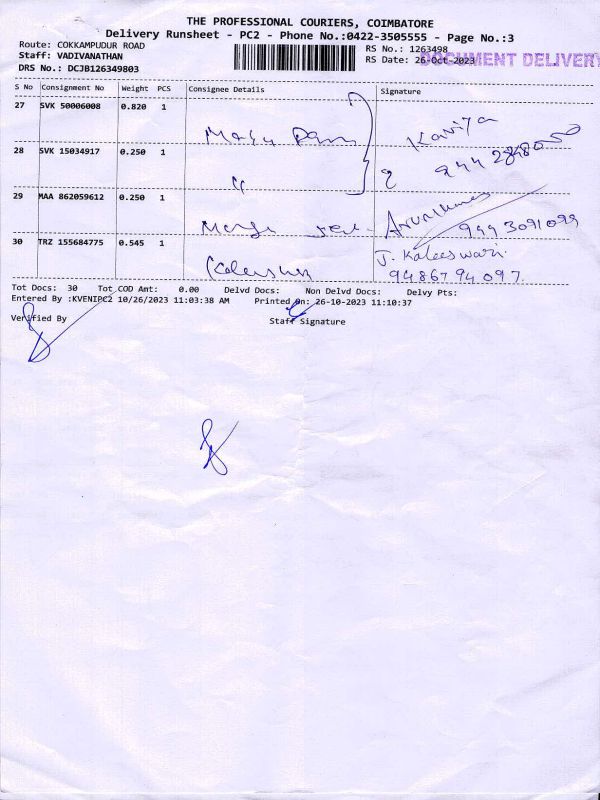 THE PROFESSIONAL COURIERS, COIMBATORE
Delivery Runsheet - PC2 - Phone No.:0422-3505555 - Page No.:3
Route: COKKAMPUDUR ROAD
RS No.: 1263498
Staff: VADIVANATHAN
RS Date: 26-Oct-2023
DOCUMENT DELIVERY
DRS No.: DCJB126349803
S No Consignment No Weight PCS Consignee Details Signature
27 SVK 50006008 0.820 1
Kaviya
28 SVK 15034917 0.250 1
29 MAA 862059612 0.250 1
Arunkumar
9443091099
30 TRZ 155684775 0.545 1
J. Kaleeswari
94867 94 097
Tot Docs: 30 Tot COD Amt: 0.00 Delvd Docs: Non Delvd Docs: Delvy Pts:
Entered By :KVENIPC2 10/26/2023 11:03:38 AM Printed On: 26-10-2023 11:10:37
Verified By Staff Signature